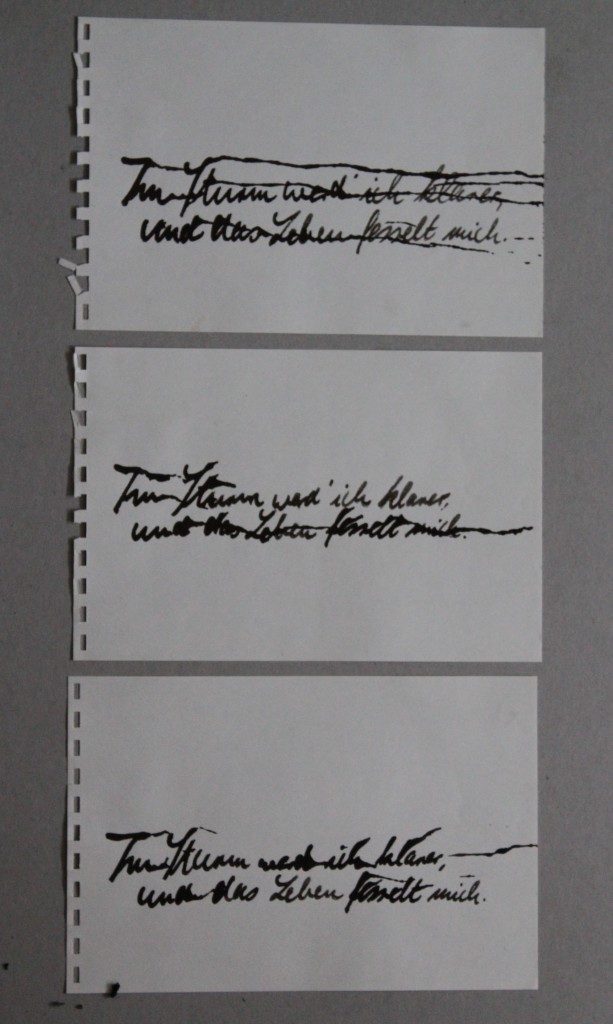 Im Sturm werd' ich klarer,
und das Leben fesselt mich.
Im Sturm werd' ich klarer,
und das Leben fesselt mich.
Im Sturm werd ich klarer,
und das Leben fesselt mich.